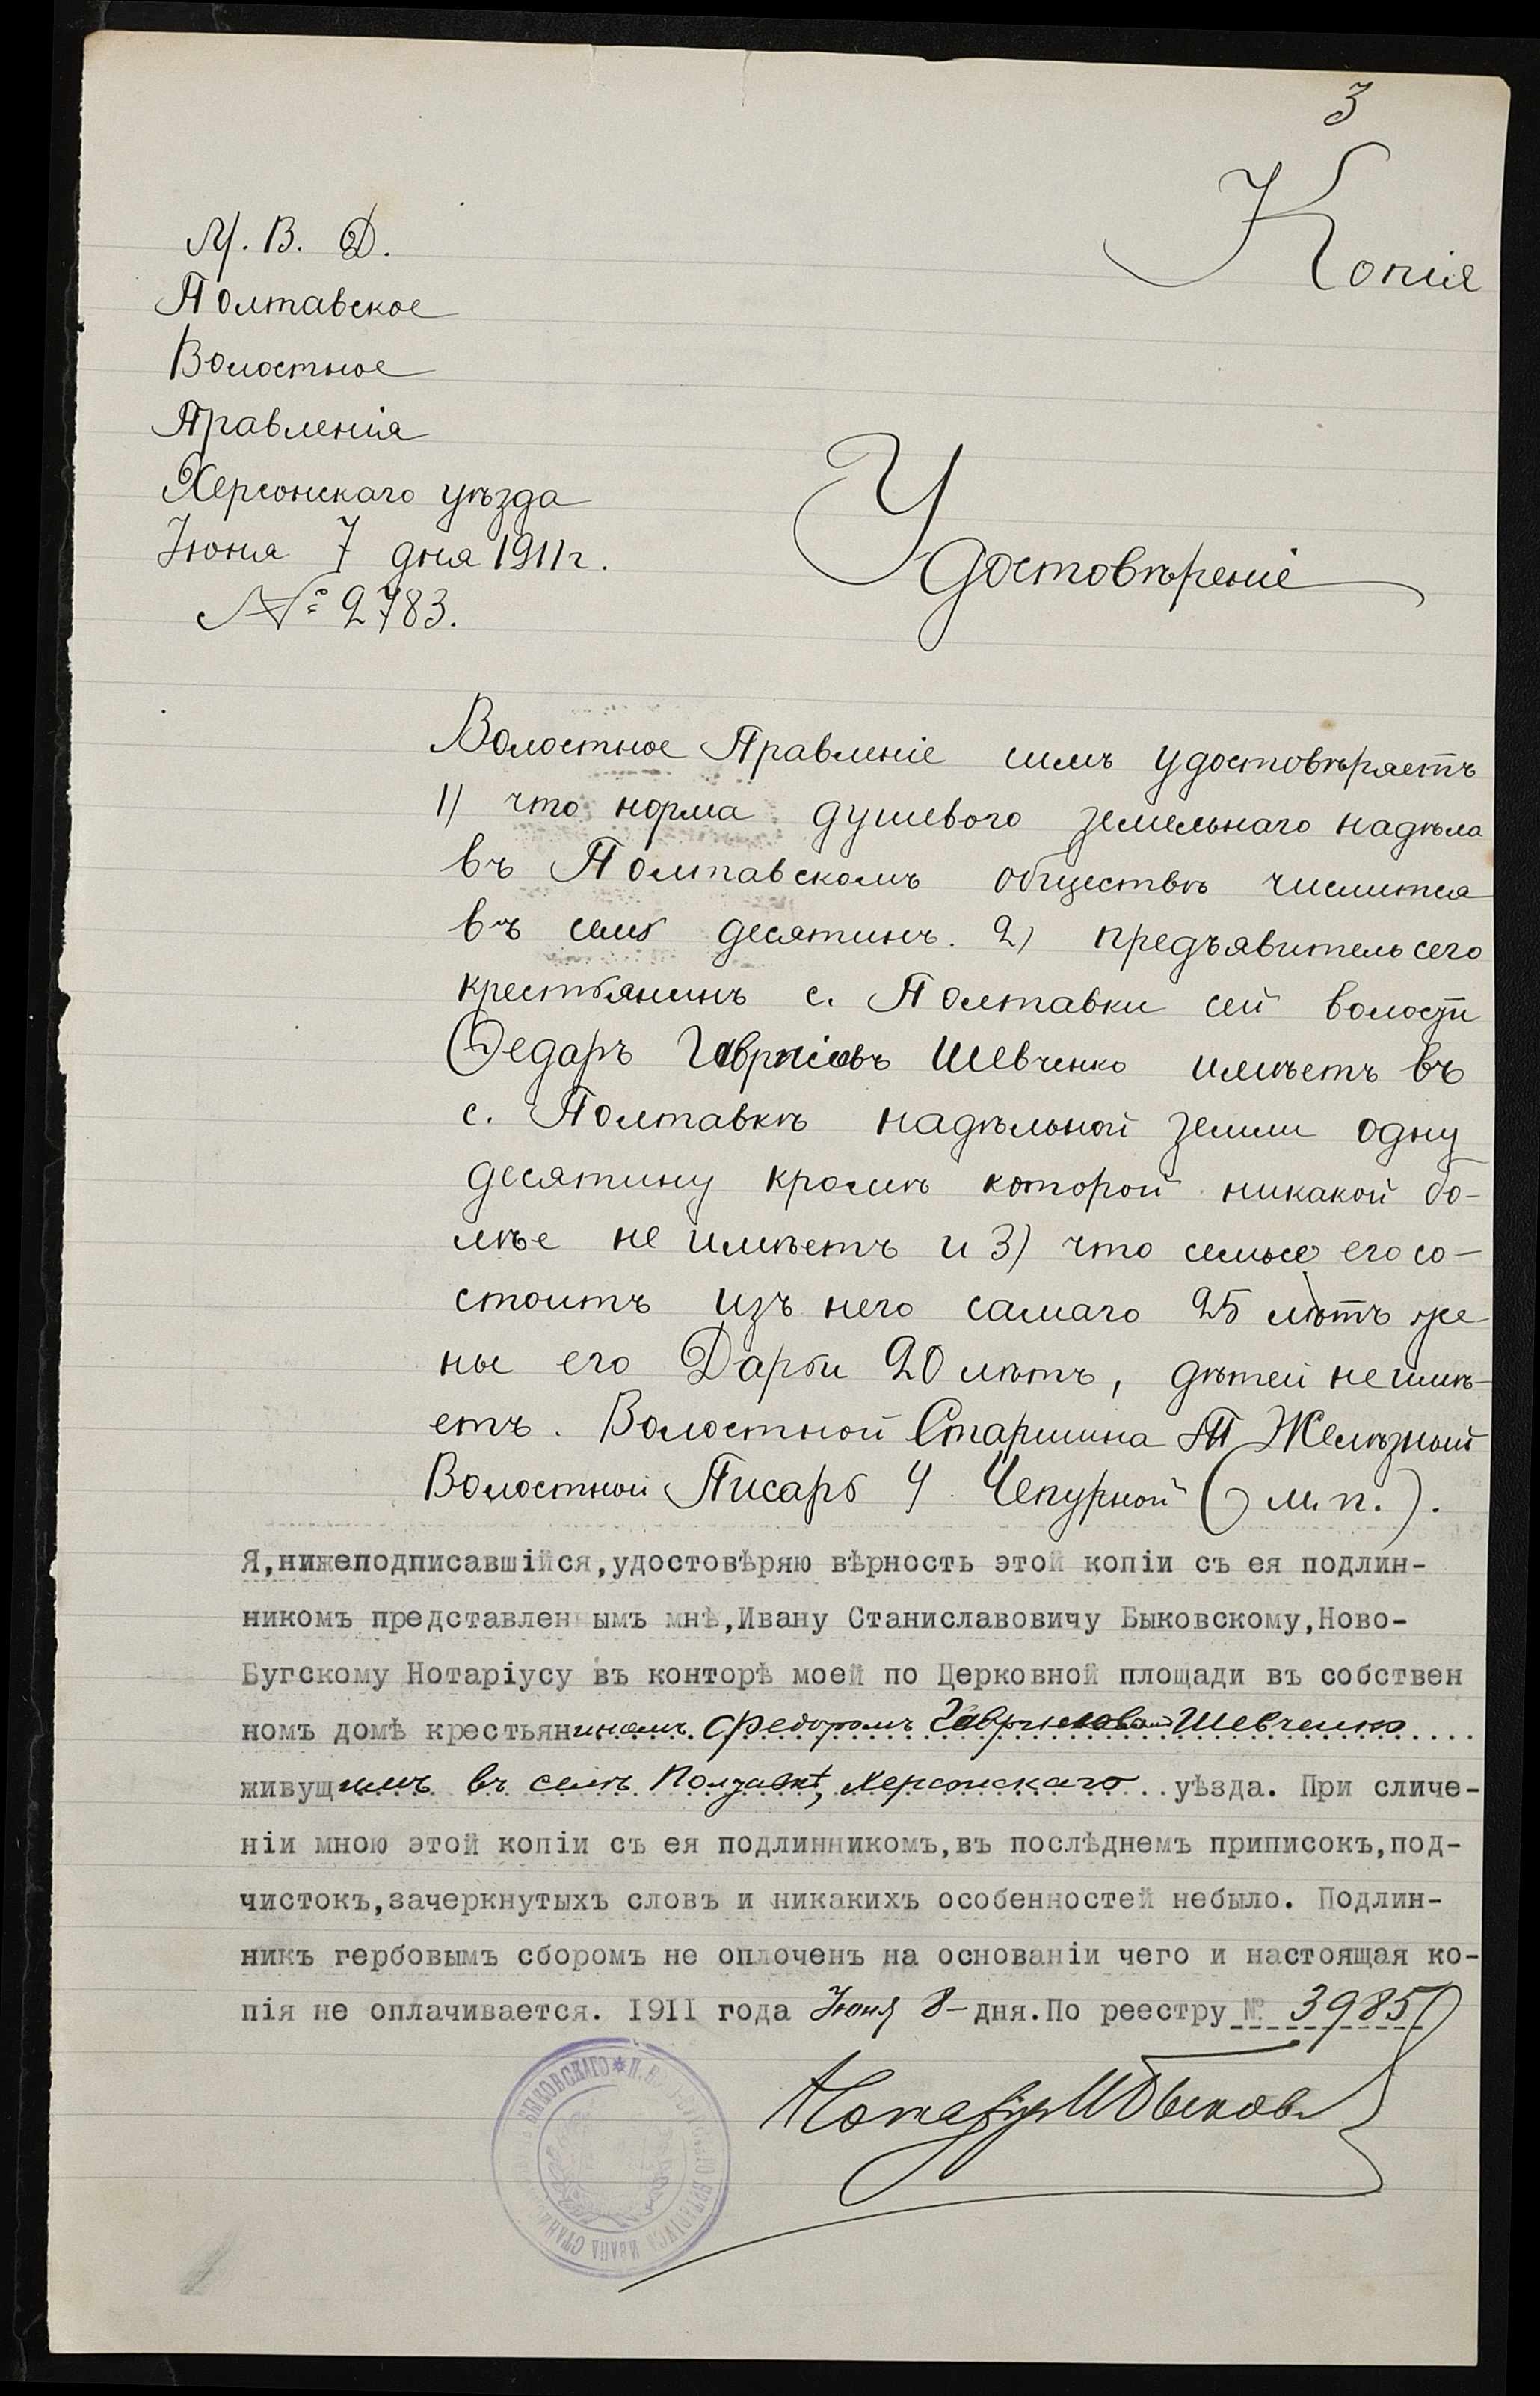 3
Копія
М. В. Д.
Полтавское
Волостное
Правленія
Херсонскаго уѣзда
Іюня 7 дня 1911 г.
№ 2783.
Удостовѣреніе
Волостное Правленіе симъ удостовѣряетъ
1) что норма душевого земельнаго надѣла
въ Полтавскомъ обществѣ числится
въ семь десятинъ. 2) предъявитель сего
крестьянинъ с. Полтавки сей волости
Федаръ Шевченко имѣетъ въ
с. Полтавкѣ надѣльной земли одну
десятину кромѣ которой никакой бо-
лѣе не имѣетъ и 3) что семья его со-
стоитъ изъ него самаго 25 лѣтъ же-
ны его Дарьи 20 лѣтъ, дѣтей не имѣ-
етъ. Волостной Старшина П Желѣзный
Волостной Писарь Чепурной (м. п.).
Я,нижеподписавшійся,удостовѣряю вѣрность этой копіи съ ея подлин-
никомъ представленнымъ мнѣ,Ивану Станиславовичу Быковскому,Ново-
Бугскому Нотаріусу въ конторѣ моей по Церковной площади въ собствен
номъ домѣ крестьяниномъ Федоромъ Шевченко
живущимъ въ селѣ Полтавкѣ, Херсонскаго уѣзда. При сличе-
ніи мною этой копіи съ ея подлинникомъ,въ послѣднемъ приписокъ,под-
чистокъ,зачеркнутыхъ словъ и никакихъ особенностей небыло. Подлин-
никъ гербовымъ сборомъ не оплоченъ на основаніи чего и настоящая ко-
пія не оплачивается. 1911 года Іюня 8 - дня.По реестру № 3985
Нотаріусъ И Быковс
БЫКОВСКАГО * НОТАРІУСА ИВАНА